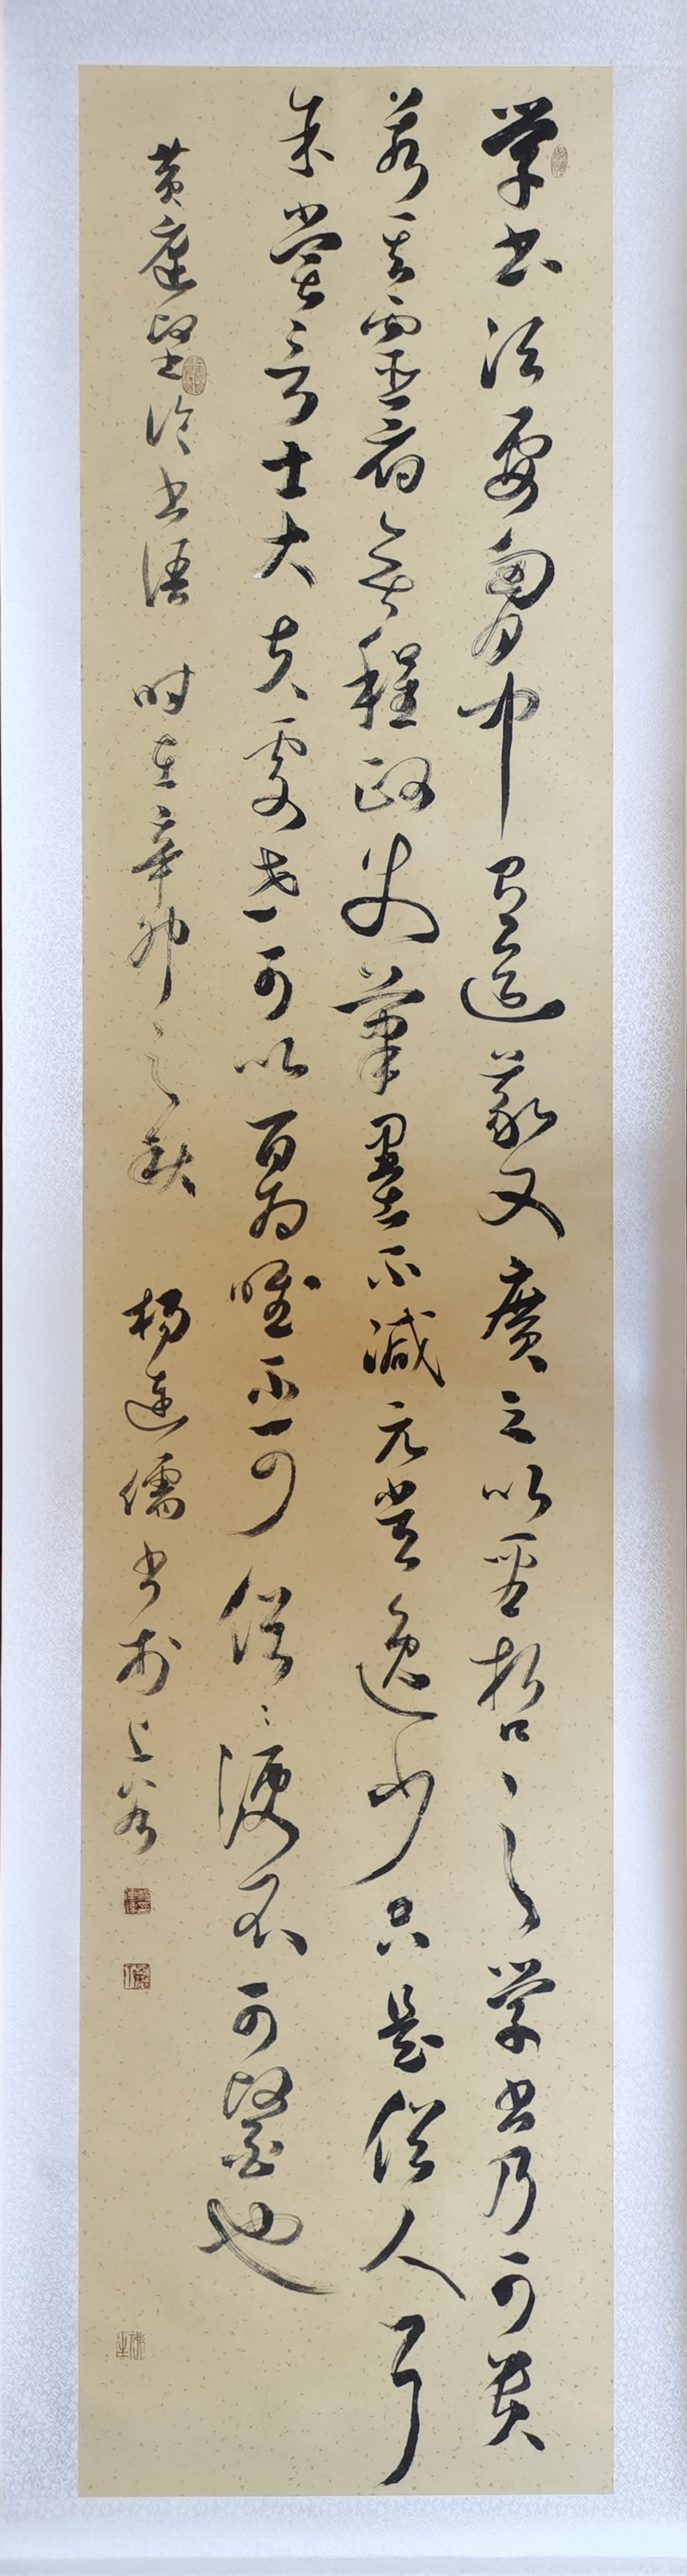 学书法要胸中有道义又广之以圣哲之学书乃可贵
若其灵府无程政使笔墨不减元常逸少只是俗人耳
余尝言士大夫处世可以百为唯不可俗々便不可医也
黄庭坚论书语 时在辛卯之秋 杨建儒书于上谷